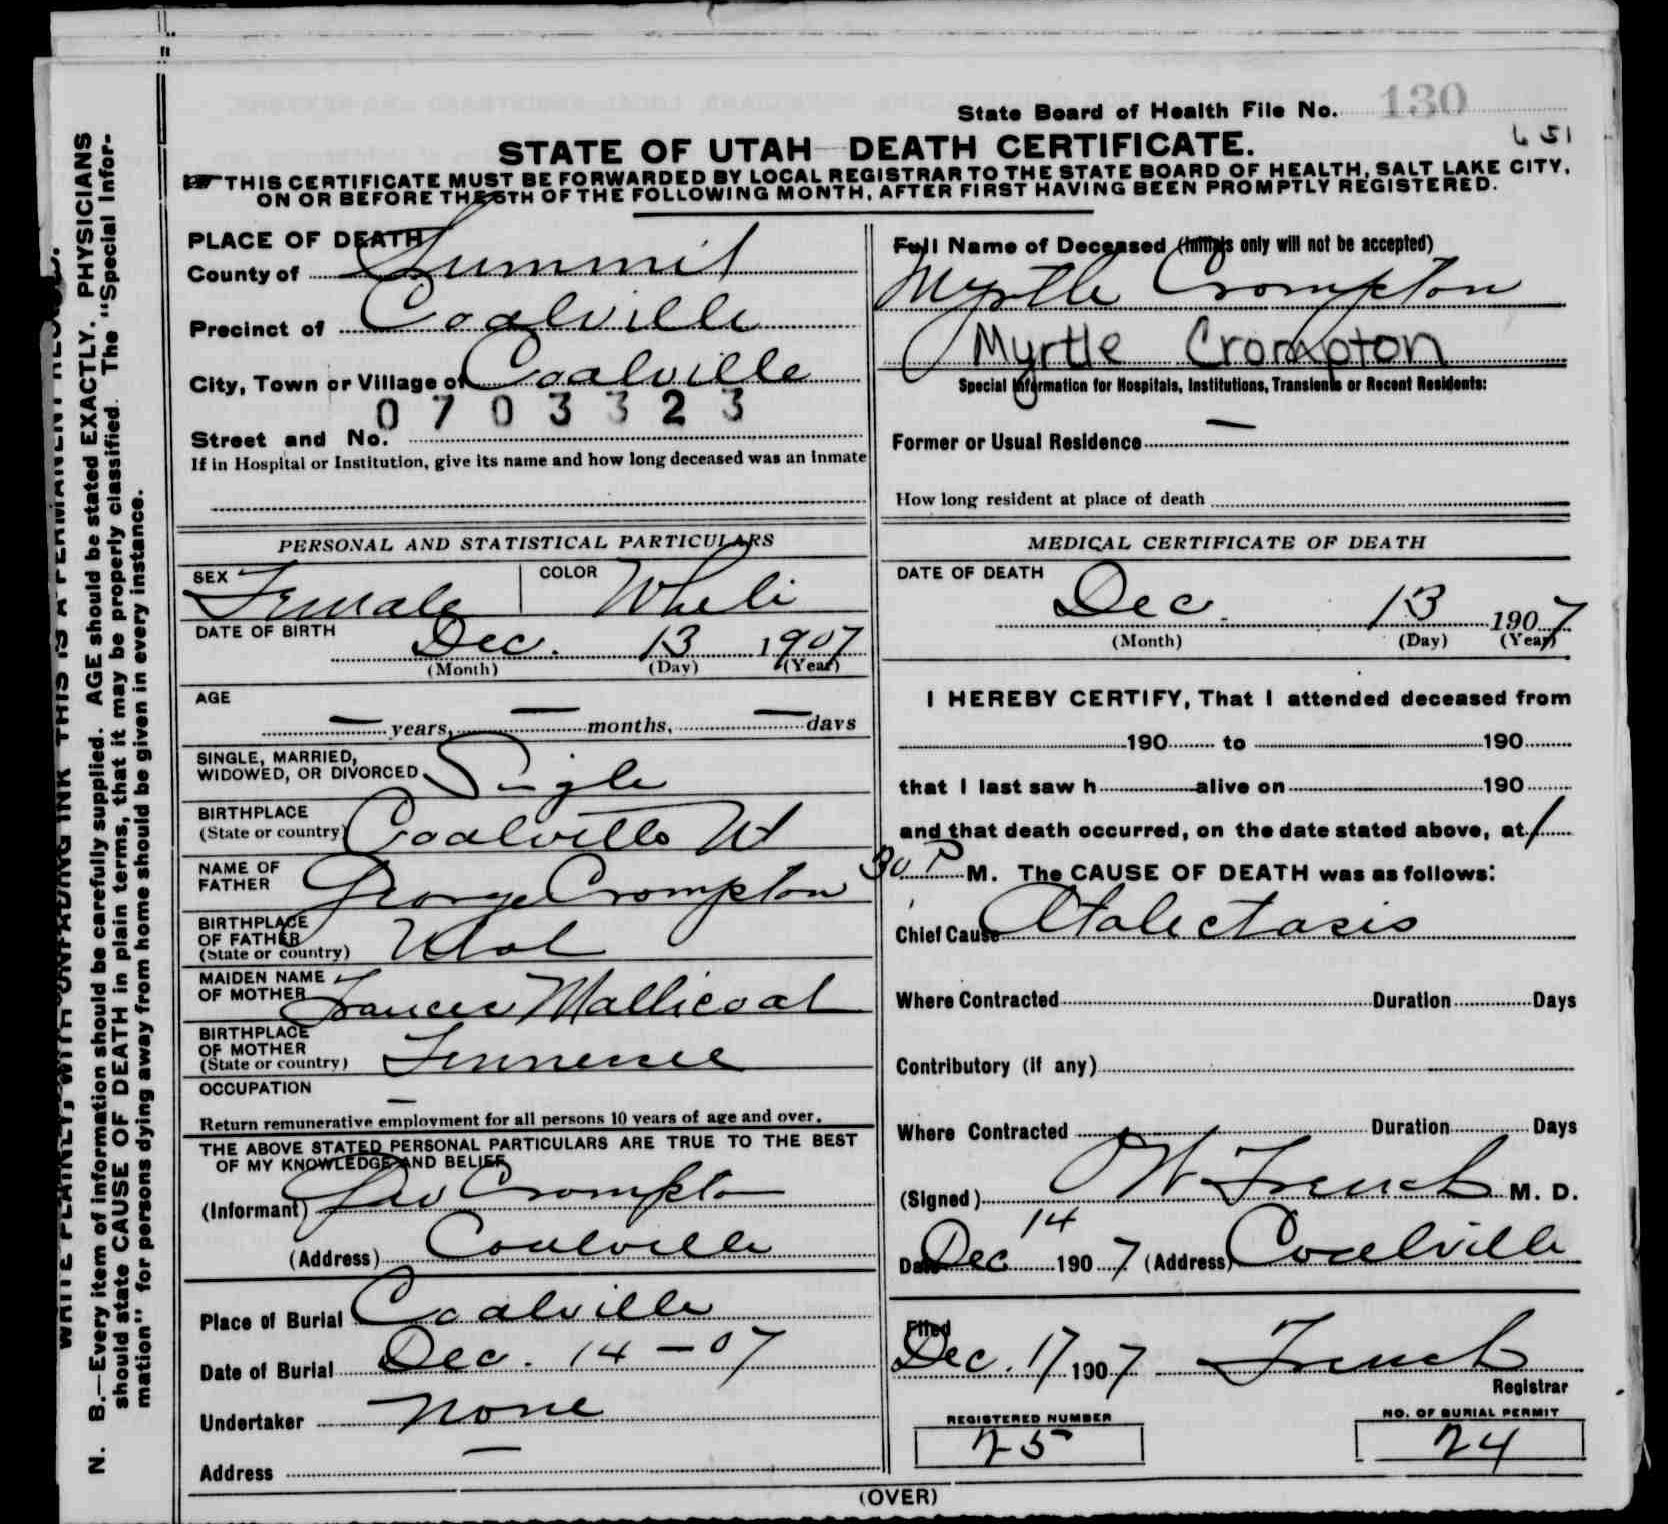 State Board of Health File No. 130
651
STATE OF UTAH DEATH CERTIFICATE.
THIS CERTIFICATE MUST BE FORWARDED BY LOCAL REGISTRAR TO THE STATE BOARD OF HEALTH, SALT LAKE CITY,
ON OR BEFORE THE 5TH OF THE FOLLOWING MONTH, AFTER FIRST HAVING BEEN PROMPTLY REGISTERED.
PLACE OF DEATH
County of Summit
Precinct of Coalville
City, Town or Village of Coalville
0703323
Street and No.
If in Hospital or Institution, give its name and how long deceased was an inmate
Full Name of Deceased (Initials only will not be accepted)
Myrtle Crompton
Myrtle Crompton
Special Information for Hospitals, Institutions, Transients or Recent Residents:
Former or Usual Residence —
How long resident at place of death
PERSONAL AND STATISTICAL PARTICULARS
SEX Female COLOR White
DATE OF BIRTH
Dec. 13 1907
(Month) (Day) (Year)
AGE
— years, — months, — days
SINGLE, MARRIED,
WIDOWED, OR DIVORCED Single
BIRTHPLACE
(State or country) Coalville Ut
NAME OF
FATHER George Crompton
BIRTHPLACE
OF FATHER
(State or country) Utah
MAIDEN NAME
OF MOTHER Frances Mallicoat
BIRTHPLACE
OF MOTHER
(State or country) Tennessee
OCCUPATION —
Return remunerative employment for all persons 10 years of age and over.
THE ABOVE STATED PERSONAL PARTICULARS ARE TRUE TO THE BEST
OF MY KNOWLEDGE AND BELIEF
(Informant) Geo Crompton
(Address) Coalville
Place of Burial Coalville
Date of Burial Dec. 14 - 07
Undertaker None
Address —
MEDICAL CERTIFICATE OF DEATH
DATE OF DEATH
Dec. 13 1907
(Month) (Day) (Year)
I HEREBY CERTIFY, That I attended deceased from
190 to 190
that I last saw h alive on 190
and that death occurred, on the date stated above, at 1
30 P M. The CAUSE OF DEATH was as follows:
Chief Cause Atalectasis
Where Contracted Duration Days
Contributory (if any)
Where Contracted Duration Days
(Signed) French M. D.
Date Dec 14 1907 (Address) Coalville
Filed
Dec. 17 1907 French
Registrar
REGISTERED NUMBER
25
NO. OF BURIAL PERMIT
24
(OVER)
WRITE PLAINLY, WITH UNFADING INK THIS IS A PERMANENT RECORD.
N. B.—Every item of information should be carefully supplied. AGE should be stated EXACTLY. PHYSICIANS
should state CAUSE OF DEATH in plain terms, that it may be properly classified. The "Special Infor-
mation" for persons dying away from home should be given in every instance.